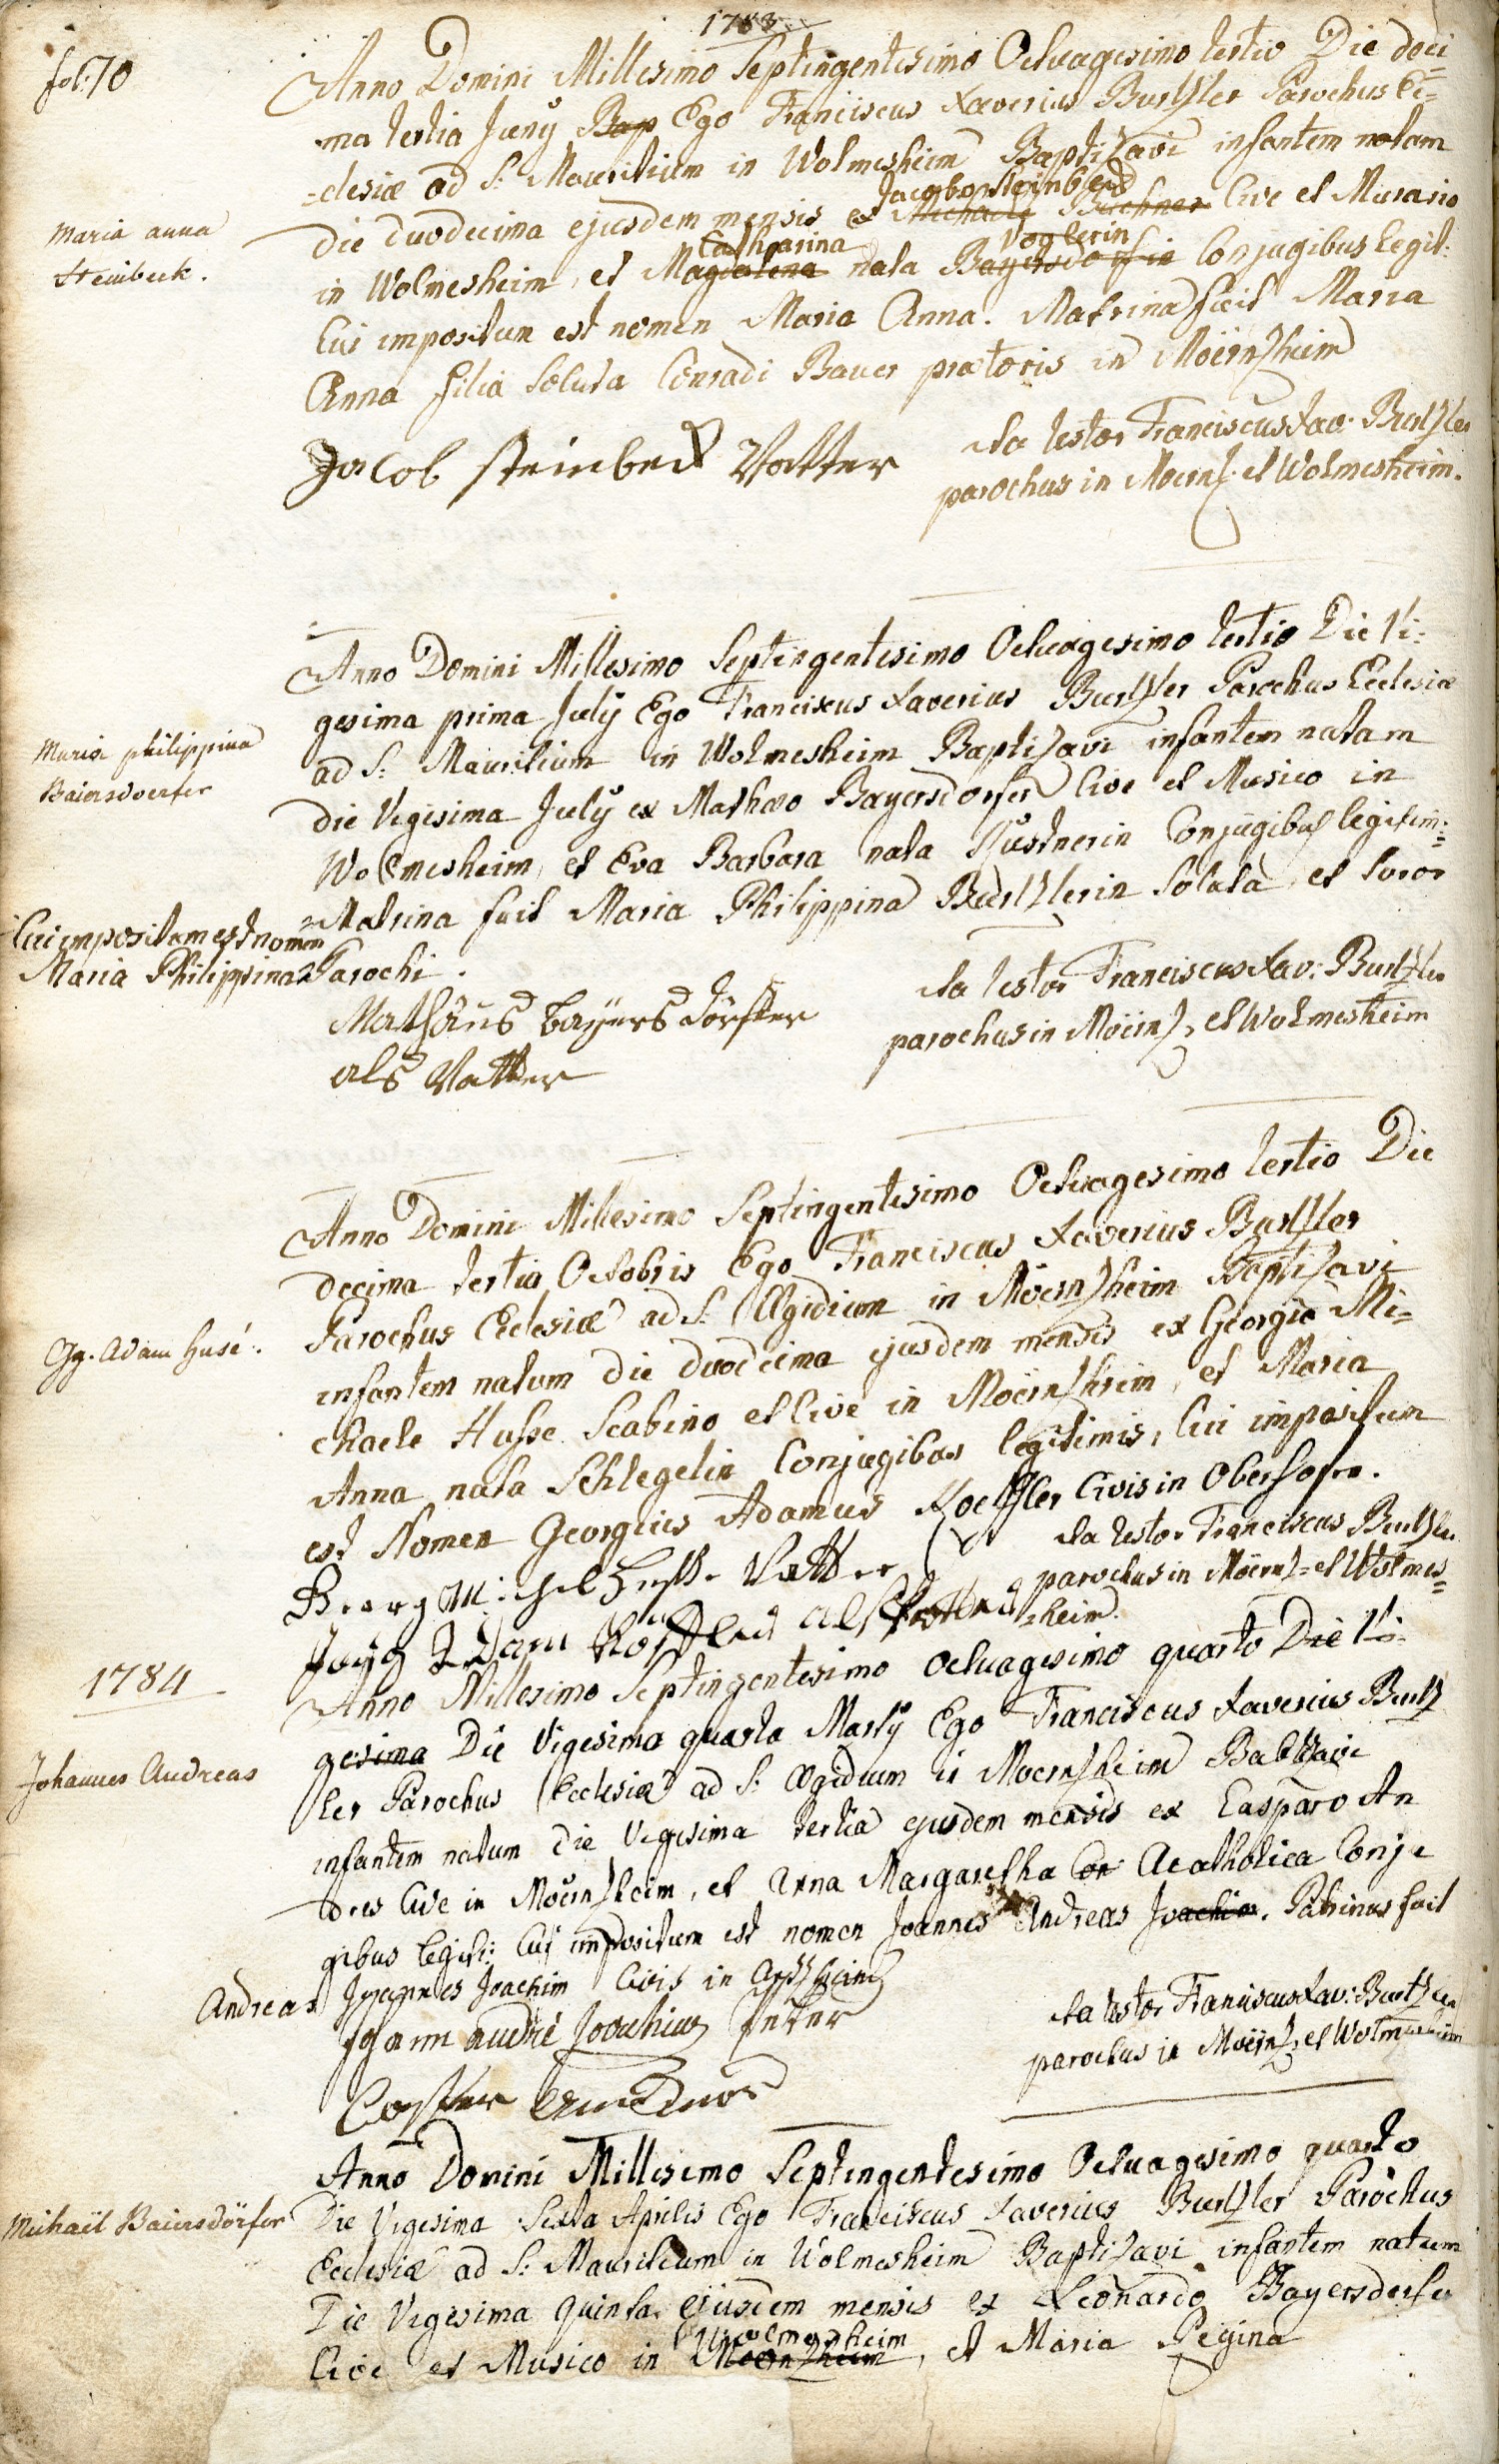 1783.
fol: 70
Anno Domini Millesimo Septingentesimo Octuagesimo tertio Die deci=
ma tertia Juny Bap Ego Franciscus Xaverius Burtzler Parochus Ec=
=clesiæ ad S: Mauritium in Wolmesheim Baptizavi infantem natam
Jacobo Steinbeck
die duodecima ejusdem mensis ex Michaele Buchner Cive et Murario
Maria anna
Steinbeck.
Catharina Voglerin
in Wolmesheim, et Magdalena nata Bayersdorfin Conjugibus legit:
Cui impositum est nomen Maria Anna. Matrina fuit Maria
Anna filia soluta Conradi Bauer prætoris in Möernzheim
Jacob Steinbeck Vatter
Ita testor Franciscus Xav: Burtzler
parochus in Moernz: et Wolmesheim.
Anno Domini Millesimo Septingentesimo Octuagesimo tertio Die Vi=
gesima prima July Ego Franciscus Xaverius Burtzler Parochus Ecclesiæ
ad S: Mauritium in Wolmesheim Baptizavi infantem natam
Maria philippina
Baiersdoerfer
die Vigesima July ex Mathæo Bayersdorfer Cive et Musico in
Wolmesheim, et Eva Barbara nata Kustnerin Conjugibus legitim:
Matrina fuit Maria Philippina Burtzlerin Soluta, et Soror
Cui impositum est nomen
Maria Philippina
Parochi.
Mathäus bayersdörffer
als Vatter
Ita testor Franciscus Xav: Burtzler
parochus in Möernz, et Wolmesheim
Anno Domini Millesimo Septingentesimo Octuagesimo tertio Die
decima tertia Octobris Ego Franciscus Xaverius Burtzler
Parochus Ecclesiæ ad S: Ægidium in Möernzheim Baptizavi
Gg. Adam Husé.
infantem natum die duodecima ejusdem mensis ex Georgio Mi=
chaele Husse Scabino et Cive in Möernzheim, et Maria
Anna nata Schlegelin Conjugibus legitimis, Cui impositum
est Nomen Georgius Adamus Koessler Civis in Oberhofen.
Georg Michel Husse Vatter
Ita testor Franciscus Burtzler
parochus in Möernz= et Wolmes=
heim.
Adam als
1784
Anno Millesimo Septingentesimo octuagesimo quarto Die Vi=
gesima Die Vigesima quarta Marty Ego Franciscus Xaverius Burtz
ler Parochus Ecclesiæ ad S: Ægidium in Moernzheim Babtizavi
Johannes Andreas
infantem natum die Vigesima tertia ejusdem mensis ex Casparo An
dres Cive in Möernzheim, et Anna Margaretha Con Acatholica Conju
gibus legit: Cui impositum est nomen Joannes Andreas Joachim. Patrinus fuit
Andreas Joannes Joachim Civis in
Johann andre Joachim
Casper
Ita testor Franciscus Xav: Burtzler
parochus in Möernz, et Wolmesheim
Anno Domini Millesimo Septingentesimo Octuagesimo quarto
Michaël Baiersdörfer
Die Vigesima Sexta Aprilis Ego Franciscus Xaverius Burtzler Parochus
Ecclesiæ ad S: Mauritium in Wolmesheim Baptizavi infantem natum
Die Vigesima quinta ejusdem mensis ex Leonardo Bayersdorfer
Wolmesheim
Cive et Musico in Moernzheim, et Maria Regina